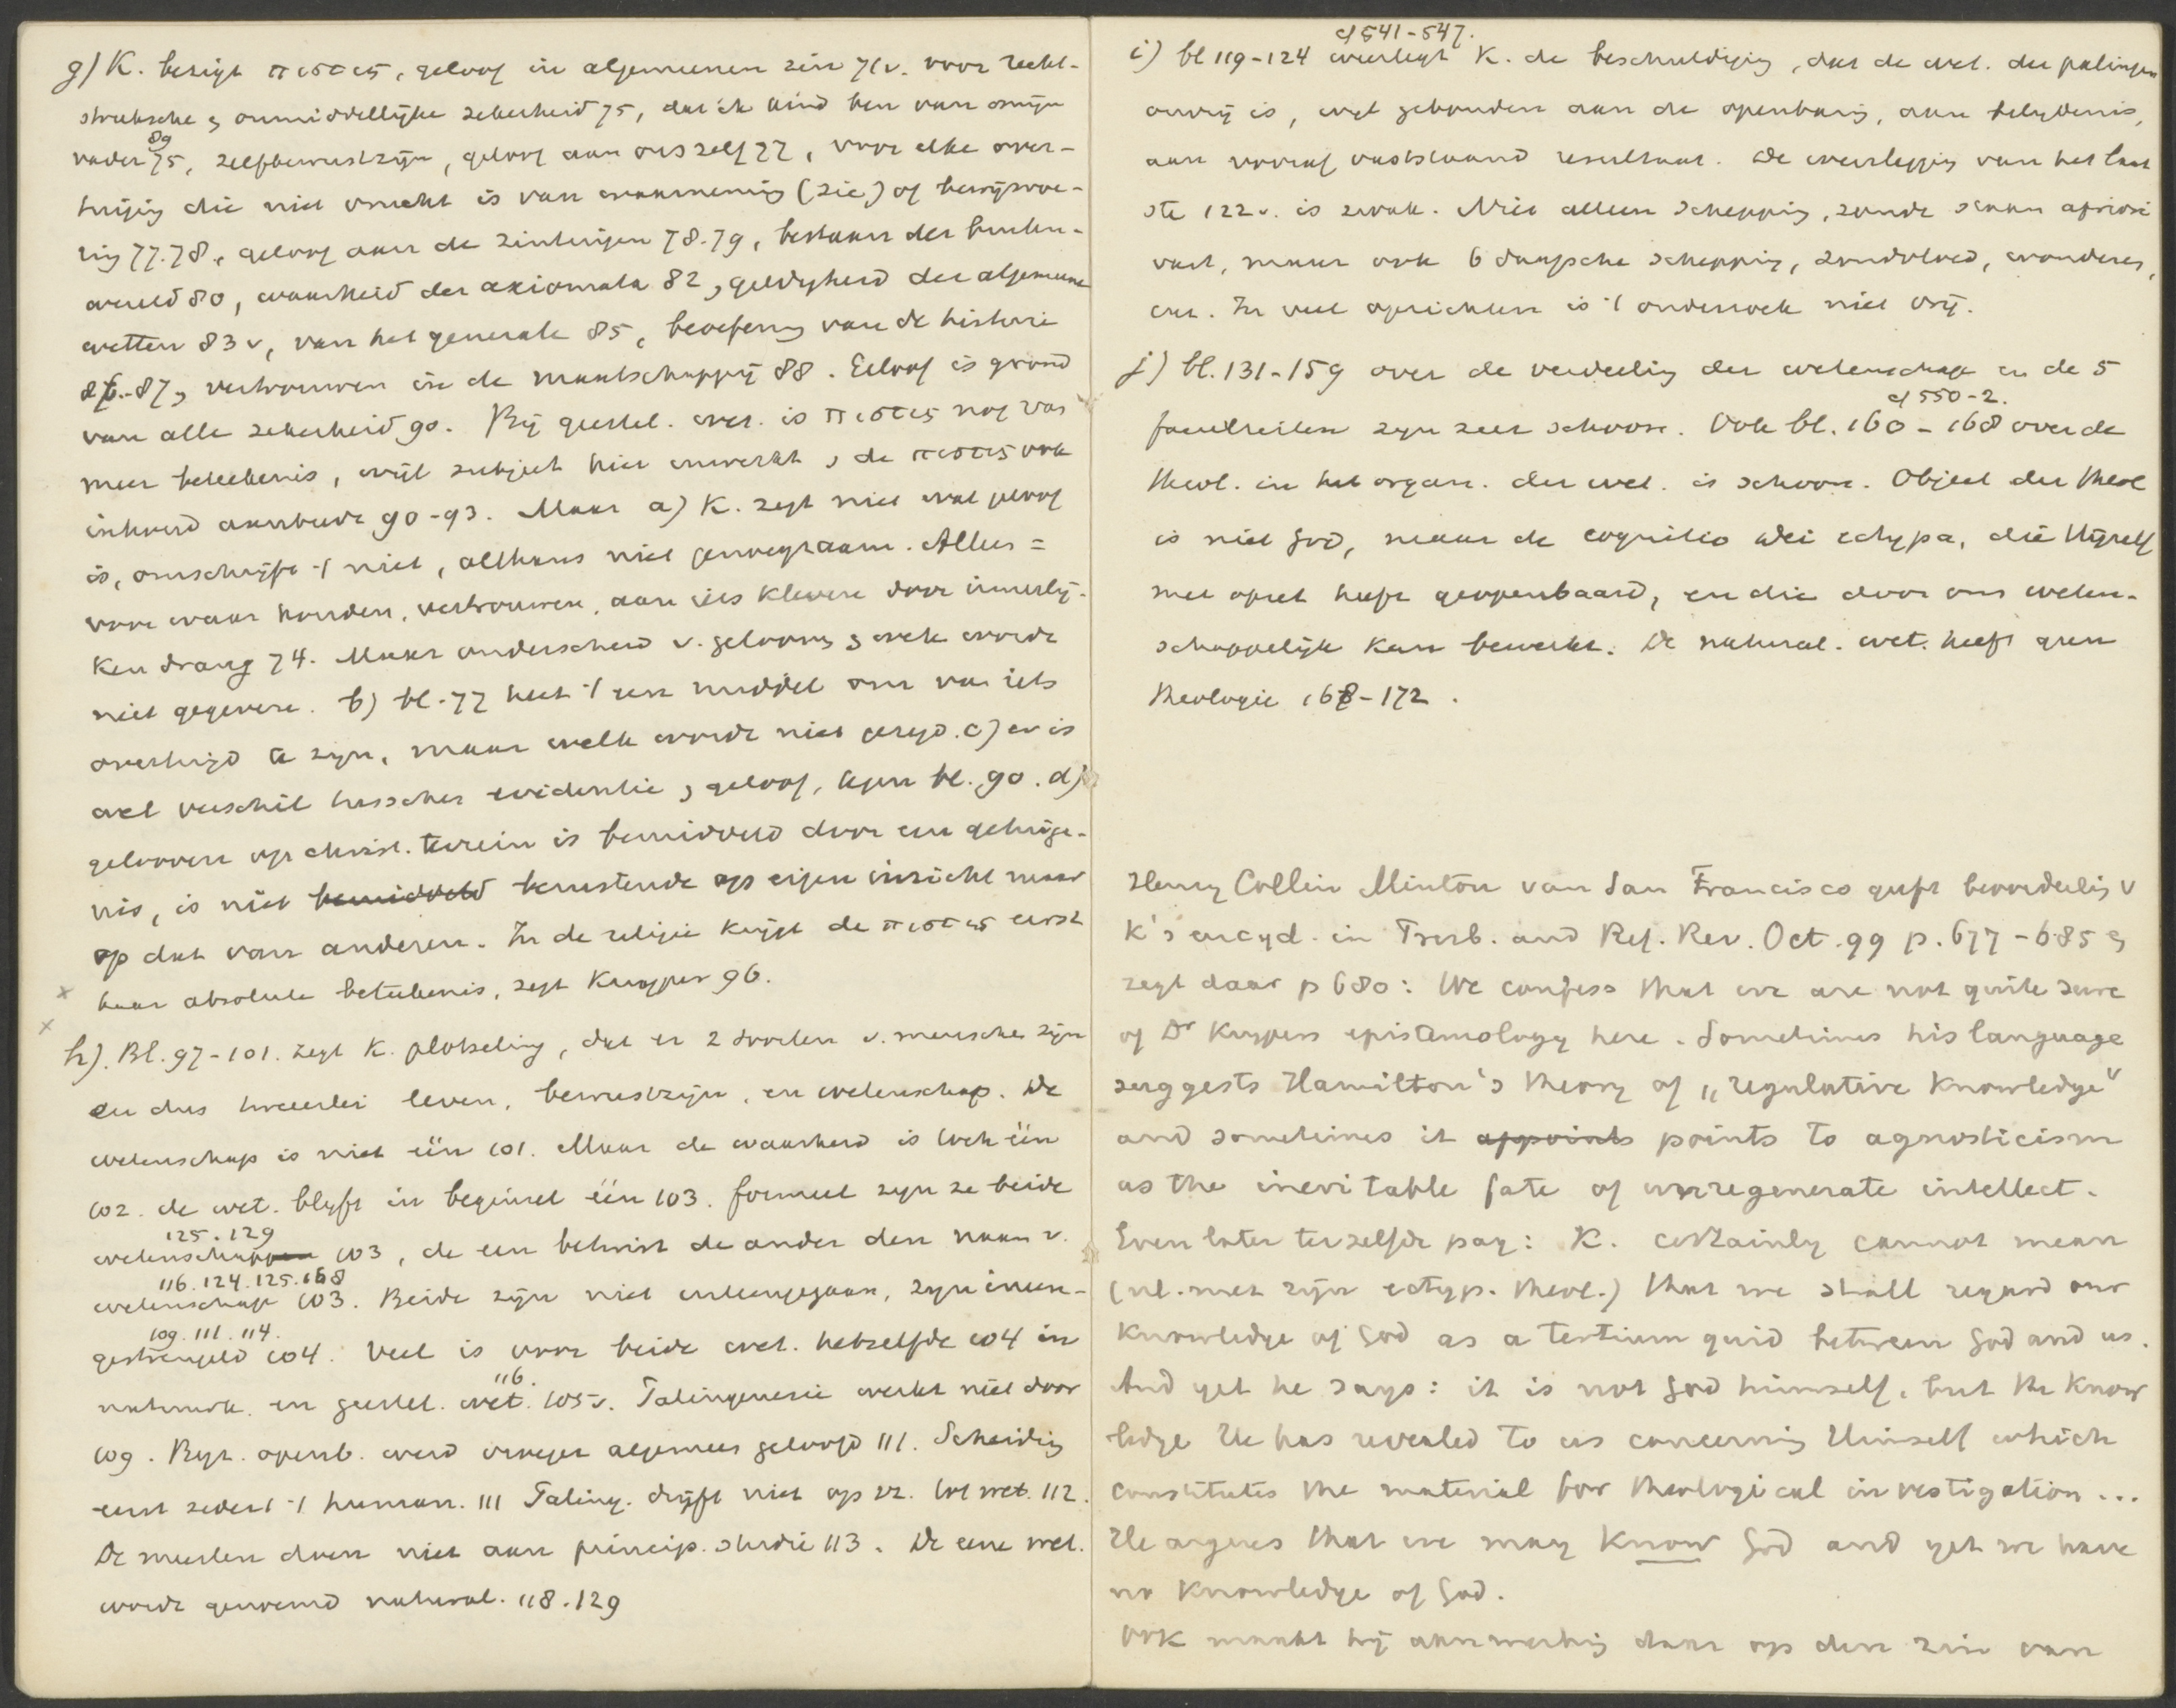 g) K. bezigt πιστις, geloof in algemeenen zin 71v. voor recht-
streeksche & onmiddellijke zekerheid 75, dat ik kind ben van mijn
89
vader 75, zelfbewustzijn, geloof aan ons zelf 77, voor elke over-
tuiging die niet vrucht is van waarneming (zie) of bewijsvoe-
ring 77.78, geloof aan de zintuigen 78-79, bestaan der buiten-
wereld 80, waarheid der axiomata 82, geldigheid der algemeene
wetten 83v, van het generale 85, beoefening van de historie
86-87, vertrouwen in de maatschappij 88. Geloof is grond
van alle zekerheid 90. Bij geestel. wet. is πιστις nog van
meer beteekenis, wijl subject hier inwerkt, de πιστις ook
inhoud aanbiedt 90-93. Maar a) K. zegt niet wat geloof
is, omschrijft 't niet, althans niet genoegzaam. Alleen =
voor waar houden, vertrouwen, aan iets kleven door innerlij-
ken drang 74. Maar onderscheid v. geloof & wet. wordt
niet gegeven. b) bl. 77 heet 't een middel om van iets
overtuigd te zijn, maar welk wordt niet gezegd. c) er is
wel verschil tusschen evidentie & geloof, tegen bl. 90. d)
gelooven op christ. terrein is bemiddeld door een getuige-
nis, is niet bemiddeld berustende op eigen inzicht maar
op dat van anderen. In de religie krijgt de πιστις eerst
haar absolute beteekenis, zegt Kuyper 96.
h). Bl. 97-101. zegt K. plotseling, dat er 2 soorten v. menschen zijn
en dus tweeërlei leven, bewustzijn, en wetenschap. De
wetenschap is niet één 101. Maar de waarheid is toch één
102. de wet. blijft in beginsel één 103. formeel zijn ze beide
125.129
wetenschappen 103, de een betwist de ander den naam v.
116.124.125.168
wetenschap 103. Beide zijn niet uiteengegaan, zijn ineen-
109.111.114.
gestrengeld 104. Veel is voor beide wet. hetzelfde 104 in
116.
natuurk. en geestel. wet. 105v. Palingenesie werkt niet door
109. Byz. openb. werd vroeger algemeen geloofd 111. Scheiding
eerst sedert 't human. 111 Paling. drijft niet op zz. tot wet. 112.
De meesten doen niet aan princip. studie 113. De eene wet.
wordt genoemd natural. 118.129
cf 541-547.
i) bl 119-124 weerlegt K. de beschuldiging, dat de wet. der palingen
onvrij is, wijl gebonden aan de openbaring, aan belijdenis,
aan vooraf vaststaand resultaat. De weerlegging van het laat
ste 122v. is zwak. Niet alleen schepping, zonde staan apriori
vast, maar ook 6 daagsche schepping, zondvloed, wonderen,
enz. In veel opzichten is 't onderzoek niet vrij.
j) bl. 131-159 over de verdeeling der wetenschap en de 5
cf 550-2.
faculteiten zijn zeer schoon. Ook bl. 160-168 over de
theol. in het organ. der wet. is schoon. Object der theol
is niet God, maar de cognitio Dei ectypa, die Hijzelf
met opzet heeft geopenbaard, en die door ons weten-
schappelijk kan bewerkt. De natural. wet. heeft geen
theologie 168-172.
Henry Collin Minton van San Francisco geeft beoordeeling v
K's encycl. in Presb. and Ref. Rev. Oct. 99 p. 677-685 &
zegt daar p 680: We confess that we are not quite sure
of Dr Kuypers epistemology here. Sometimes his language
suggests Hamilton's theory of „regulative knowledge"
and sometimes it appoints points to agnosticism
as the inevitable fate of unregenerate intellect.
Even later terzelfde pag: K. certainly cannot mean
(nl. met zijn ectyp. theol.) that we shall regard our
knowledge of God as a tertium quid between God and us.
And yet he says: it is not God himself, but the know
ledge He has revealed to us concerning Himself which
constitutes the material for theological investigation...
He argues that we may know God and yet we have
no knowledge of God.
Ook maakt hij aanmerking daar op den zin van